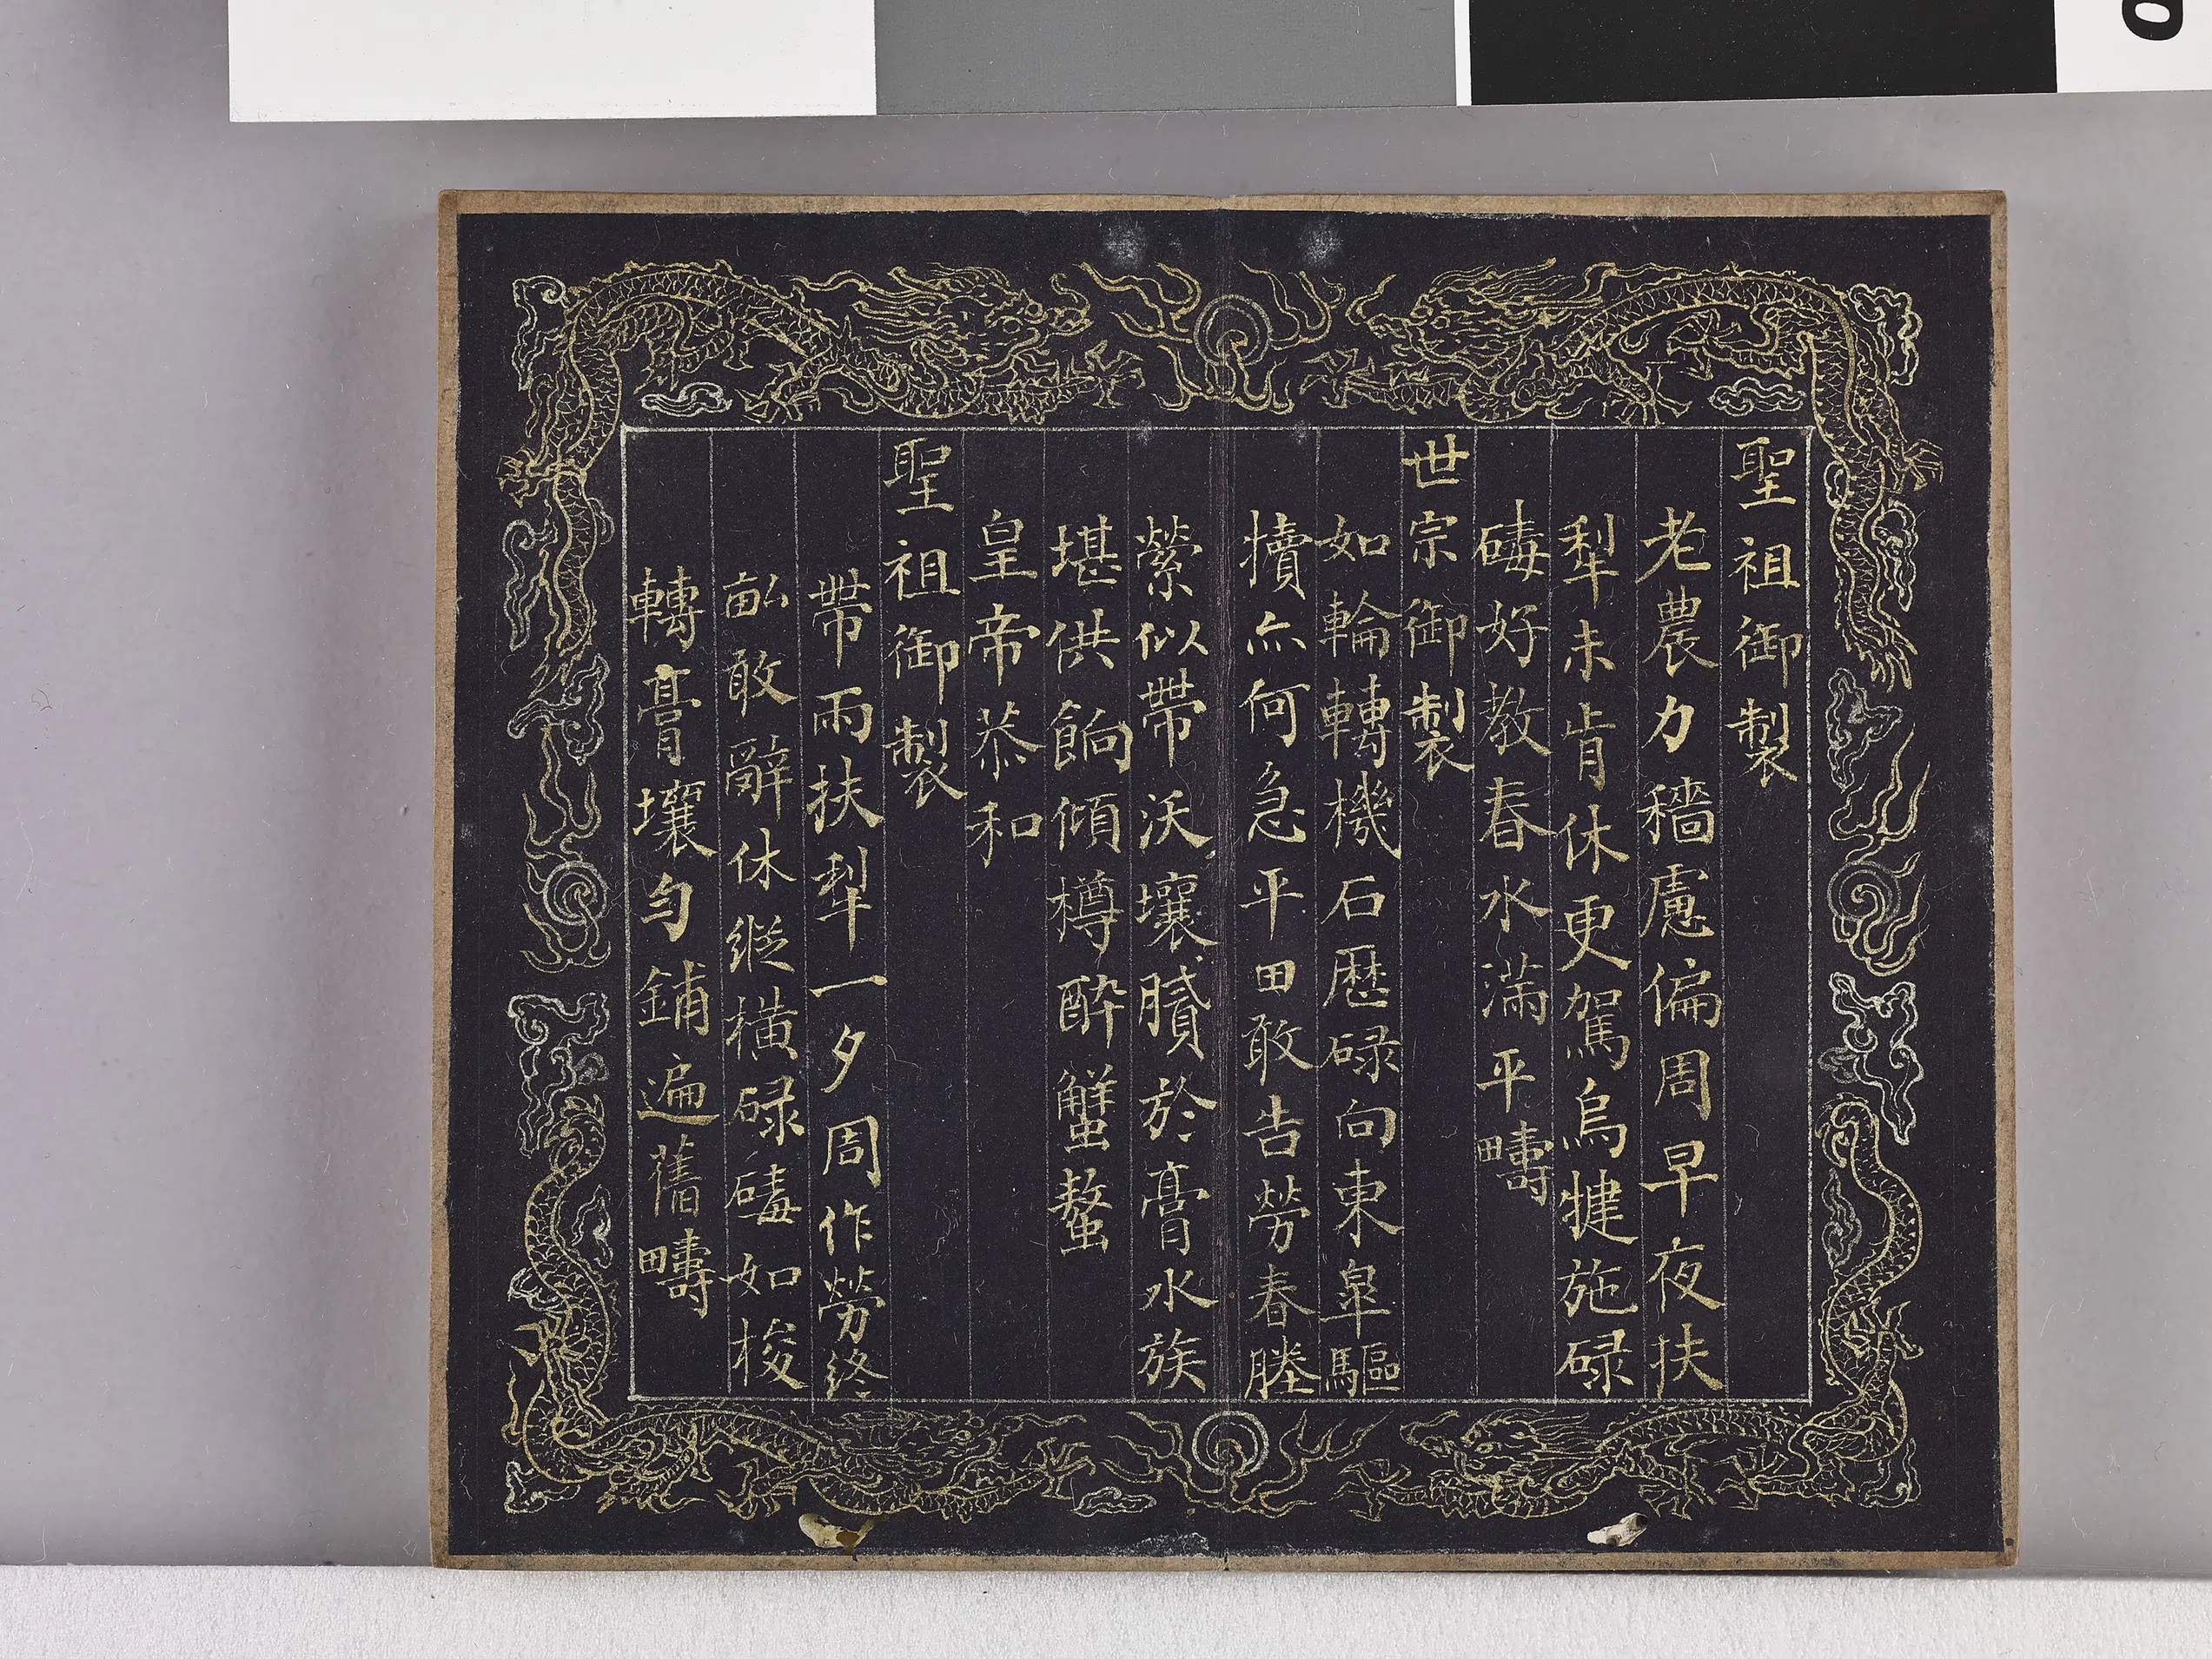 聖祖御製
老農力穡慮偏周早夜扶
犁未肯休更駕烏犍施碌
碡好教春水滿平疇
世宗御製
如輪轉機石歷碌向東臯驅
犢亦何急平田敢告勞春塍
縈似帶沃壤膩於膏水族
堪供餉傾樽醉蟹螯
皇帝恭和
聖祖御製
帶雨扶犁一夕周作勞終
畝敢辭休縱橫碌碡如梭
轉膏壤勻鋪遍舊疇
0